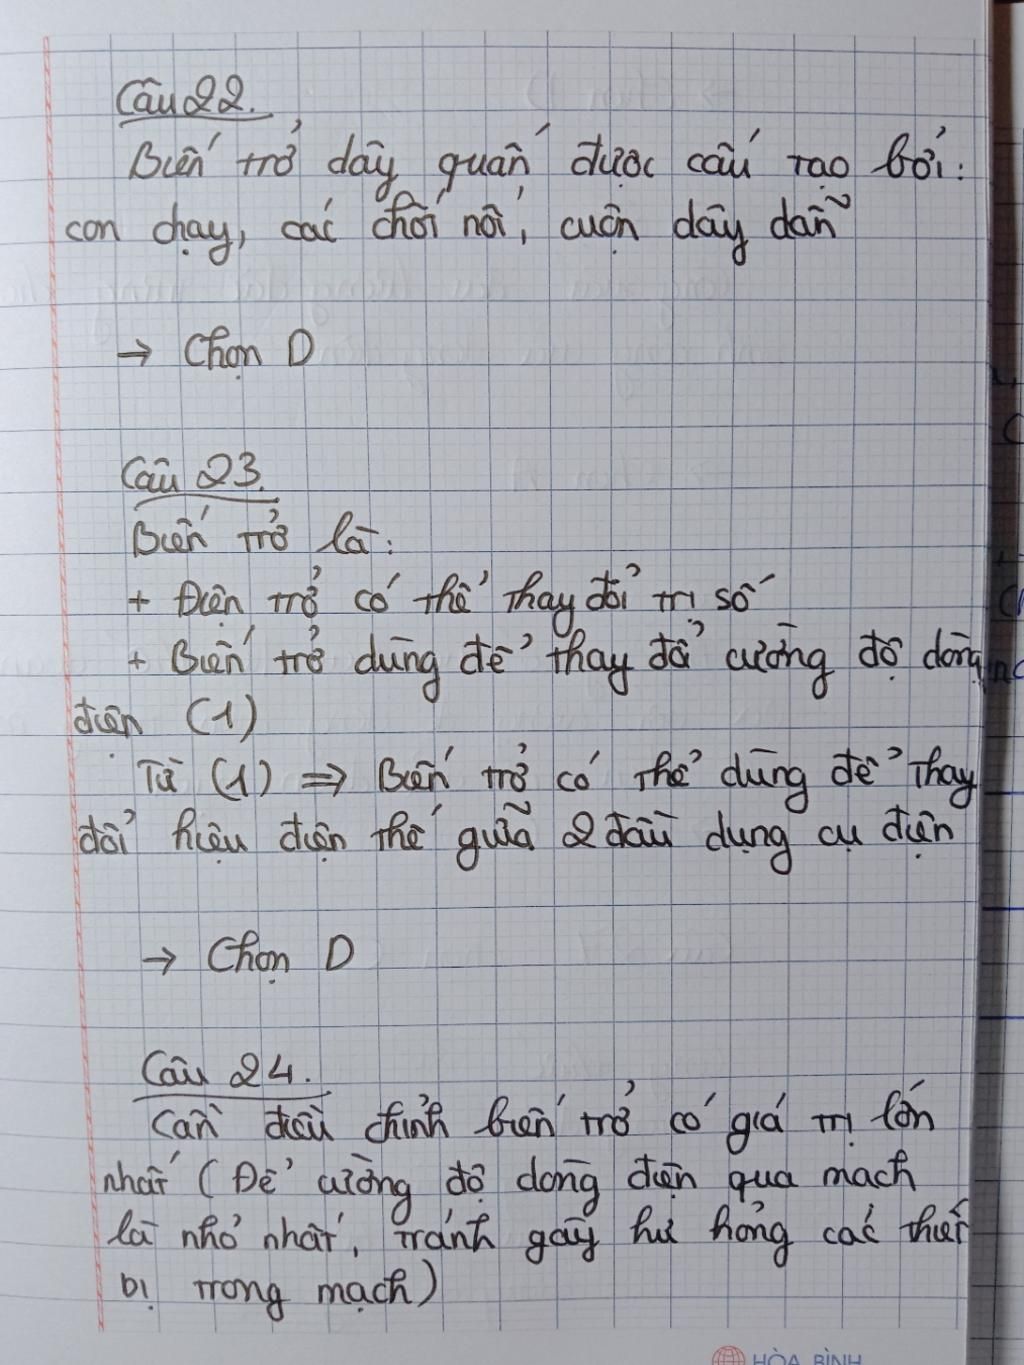 Câu 22.
Biến trở dây quấn được cấu tạo bởi:
con chạy, các chốt nối, cuộn dây dẫn
→ Chọn D
Câu 23.
Biến trở là:
+ Điện trở có thể thay đổi trị số
+ Biến trở dùng để thay đổi cường độ dòng
điện (1)
Từ (1) ⇒ Biến trở có thể dùng để thay
đổi hiệu điện thế giữa 2 đầu dụng cụ điện
→ Chọn D
Câu 24.
Cần điều chỉnh biến trở có giá trị lớn
nhất (Để cường độ dòng điện qua mạch
là nhỏ nhất, tránh gây hư hỏng các thiết
bị trong mạch)
HÒA BÌNH